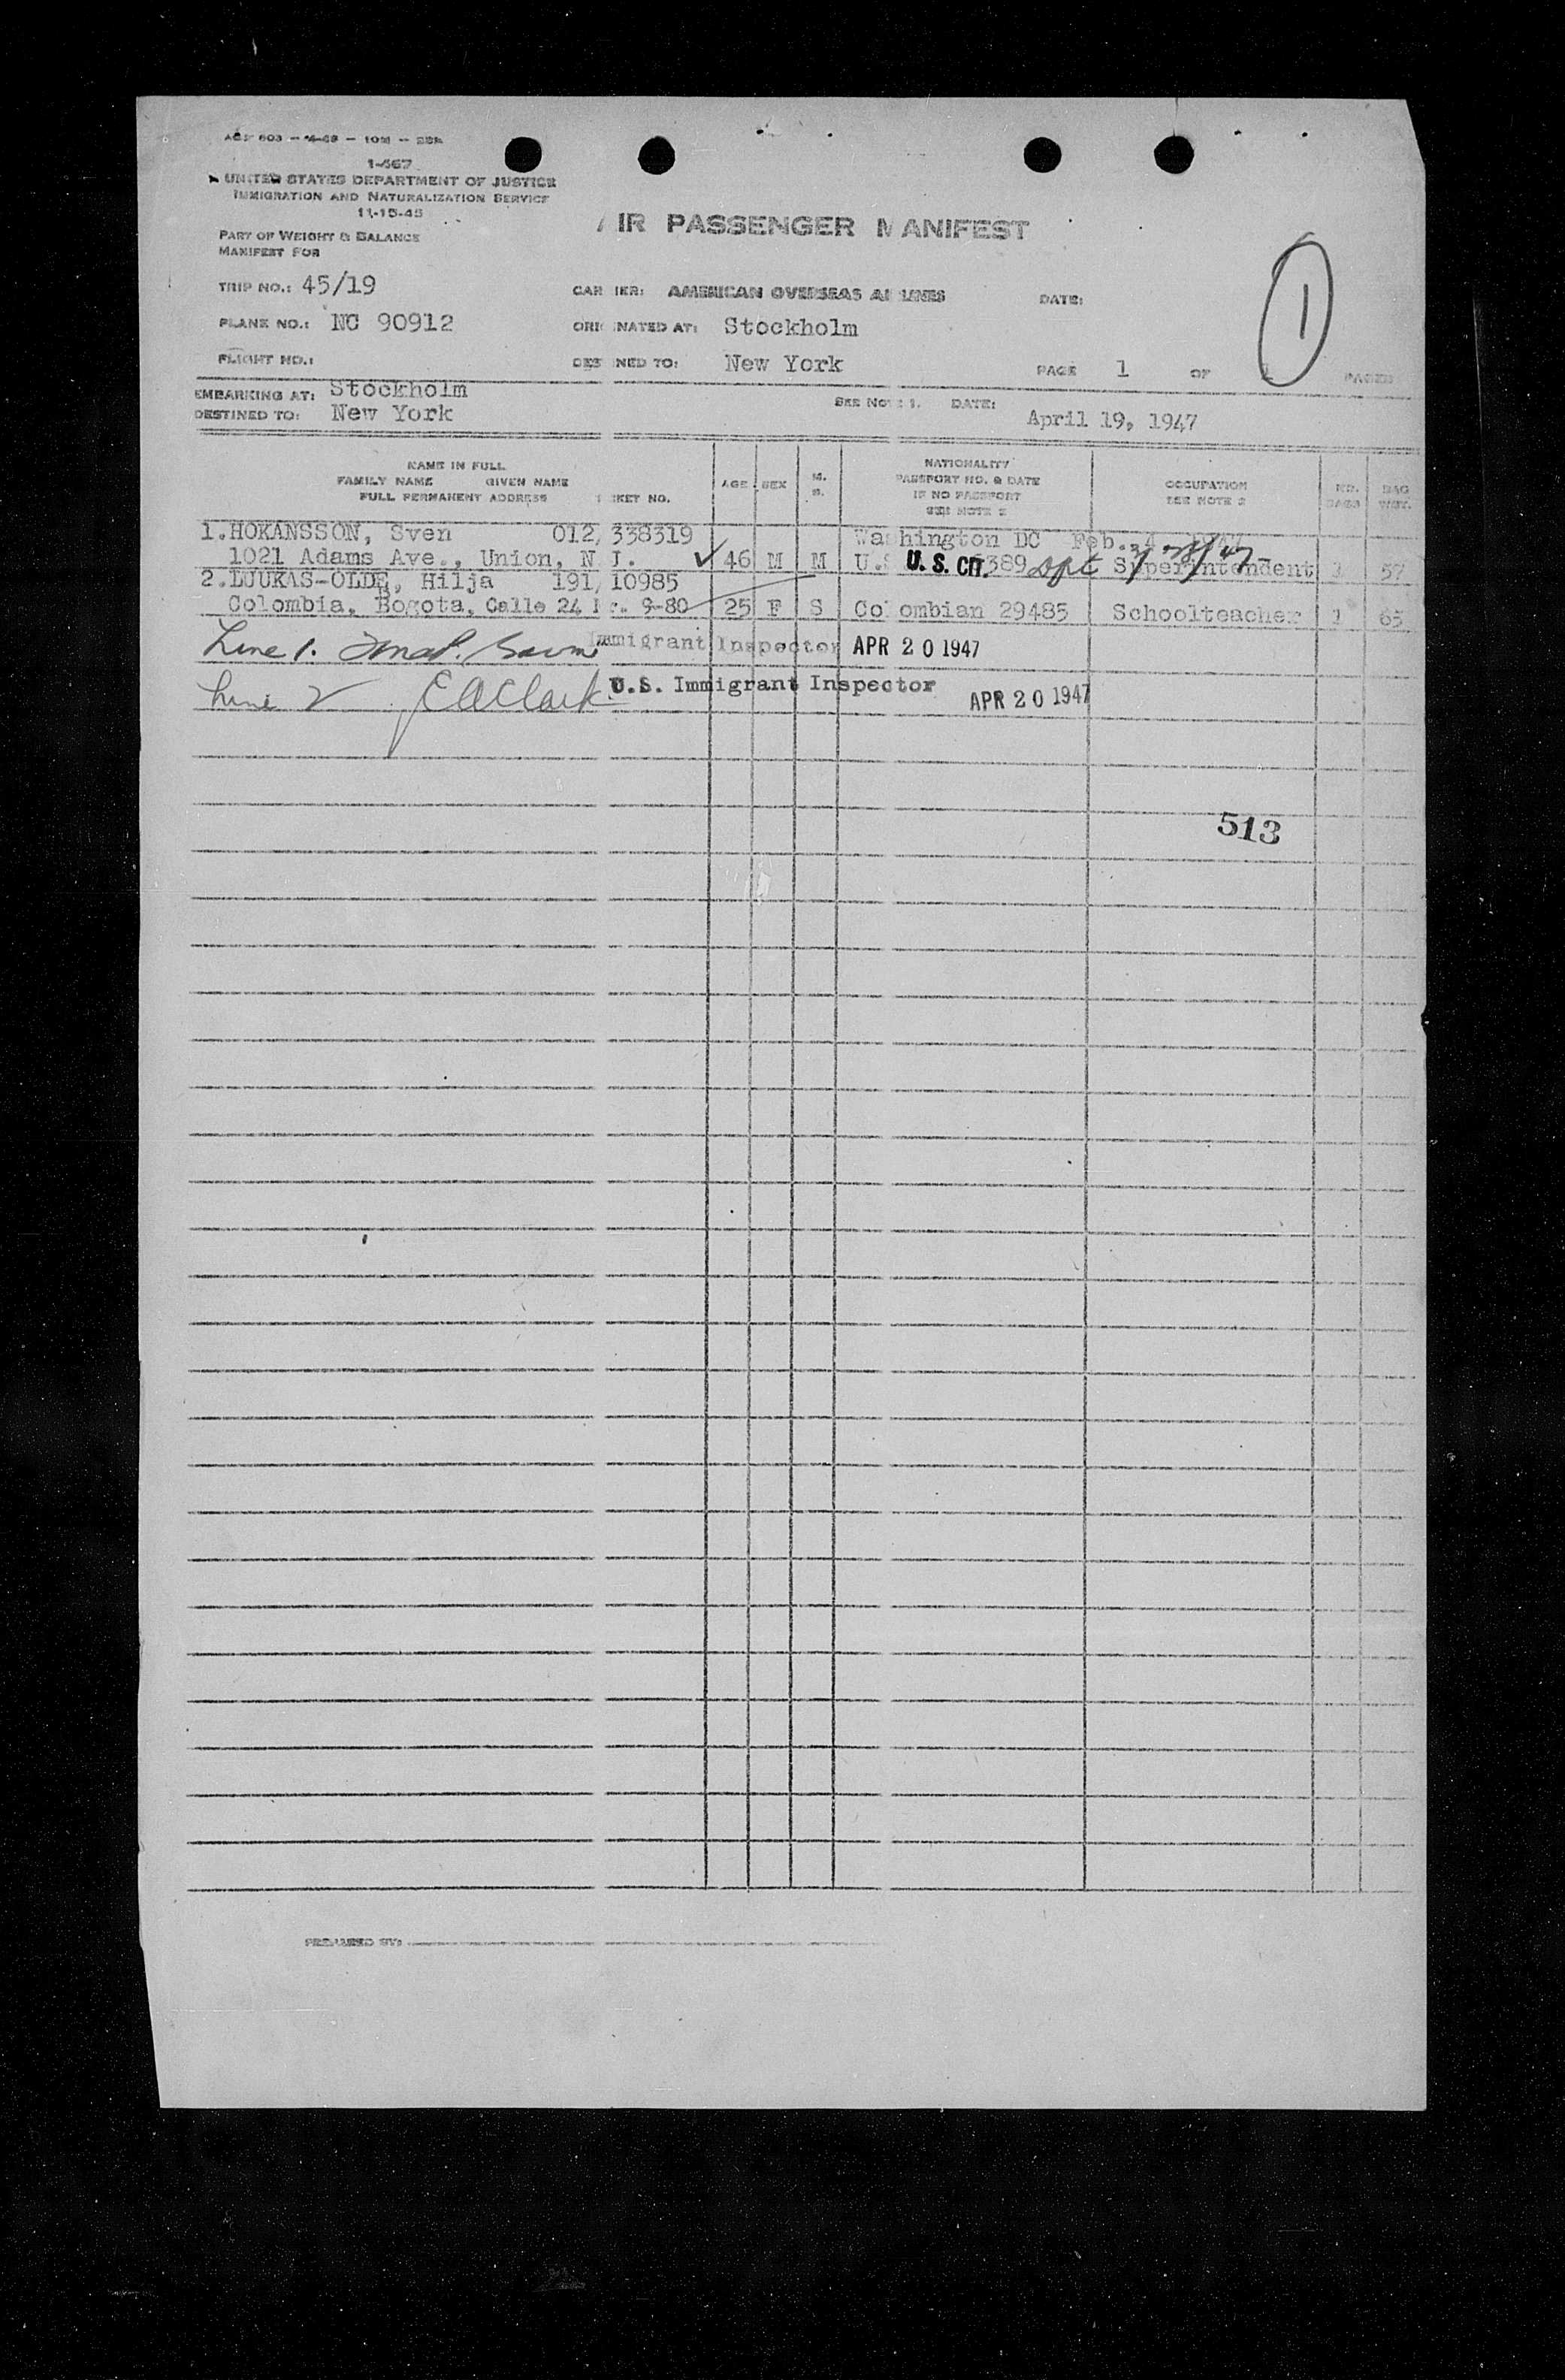 1-467
UNITED STATES DEPARTMENT OF JUSTICE
IMMIGRATION AND NATURALIZATION SERVICE
11-15-45
AIR PASSENGER MANIFEST
PART OF WEIGHT & BALANCE
MANIFEST FOR
TRIP NO.: 45/19 CARRIER: AMERICAN OVERSEAS AIRLINES DATE:
PLANE NO.: NC 90912 ORIGINATED AT: Stockholm
FLIGHT NO.: DESTINED TO: New York PAGE 1 OF PAGES
1
EMBARKING AT: Stockholm
DESTINED TO: New York SEE NOTE 1. DATE: April 19, 1947
NAME IN FULL
FAMILY NAME GIVEN NAME
FULL PERMANENT ADDRESS TICKET NO. AGE SEX M. S. NATIONALITY PASSPORT NO. & DATE IF NO PASSPORT SEE NOTE 2 OCCUPATION SEE NOTE 2 NO. BAGS BAG WGT.
1. HOKANSSON, Sven 012,338319 Washington DC Feb. 4,
1021 Adams Ave., Union, N.J. 46 M M U.S. CIT. Superintendent 57
2. LJUKAS-OLDE, Hilja 191,10985
Colombia, Bogota, Calle 24 Nr. 9-80 25 F S Colombian 29485 Schoolteacher 1 65
Line 1. Immigrant Inspector APR 20 1947
Line 2 Clark U.S. Immigrant Inspector APR 20 1947
513
PREPARED BY: